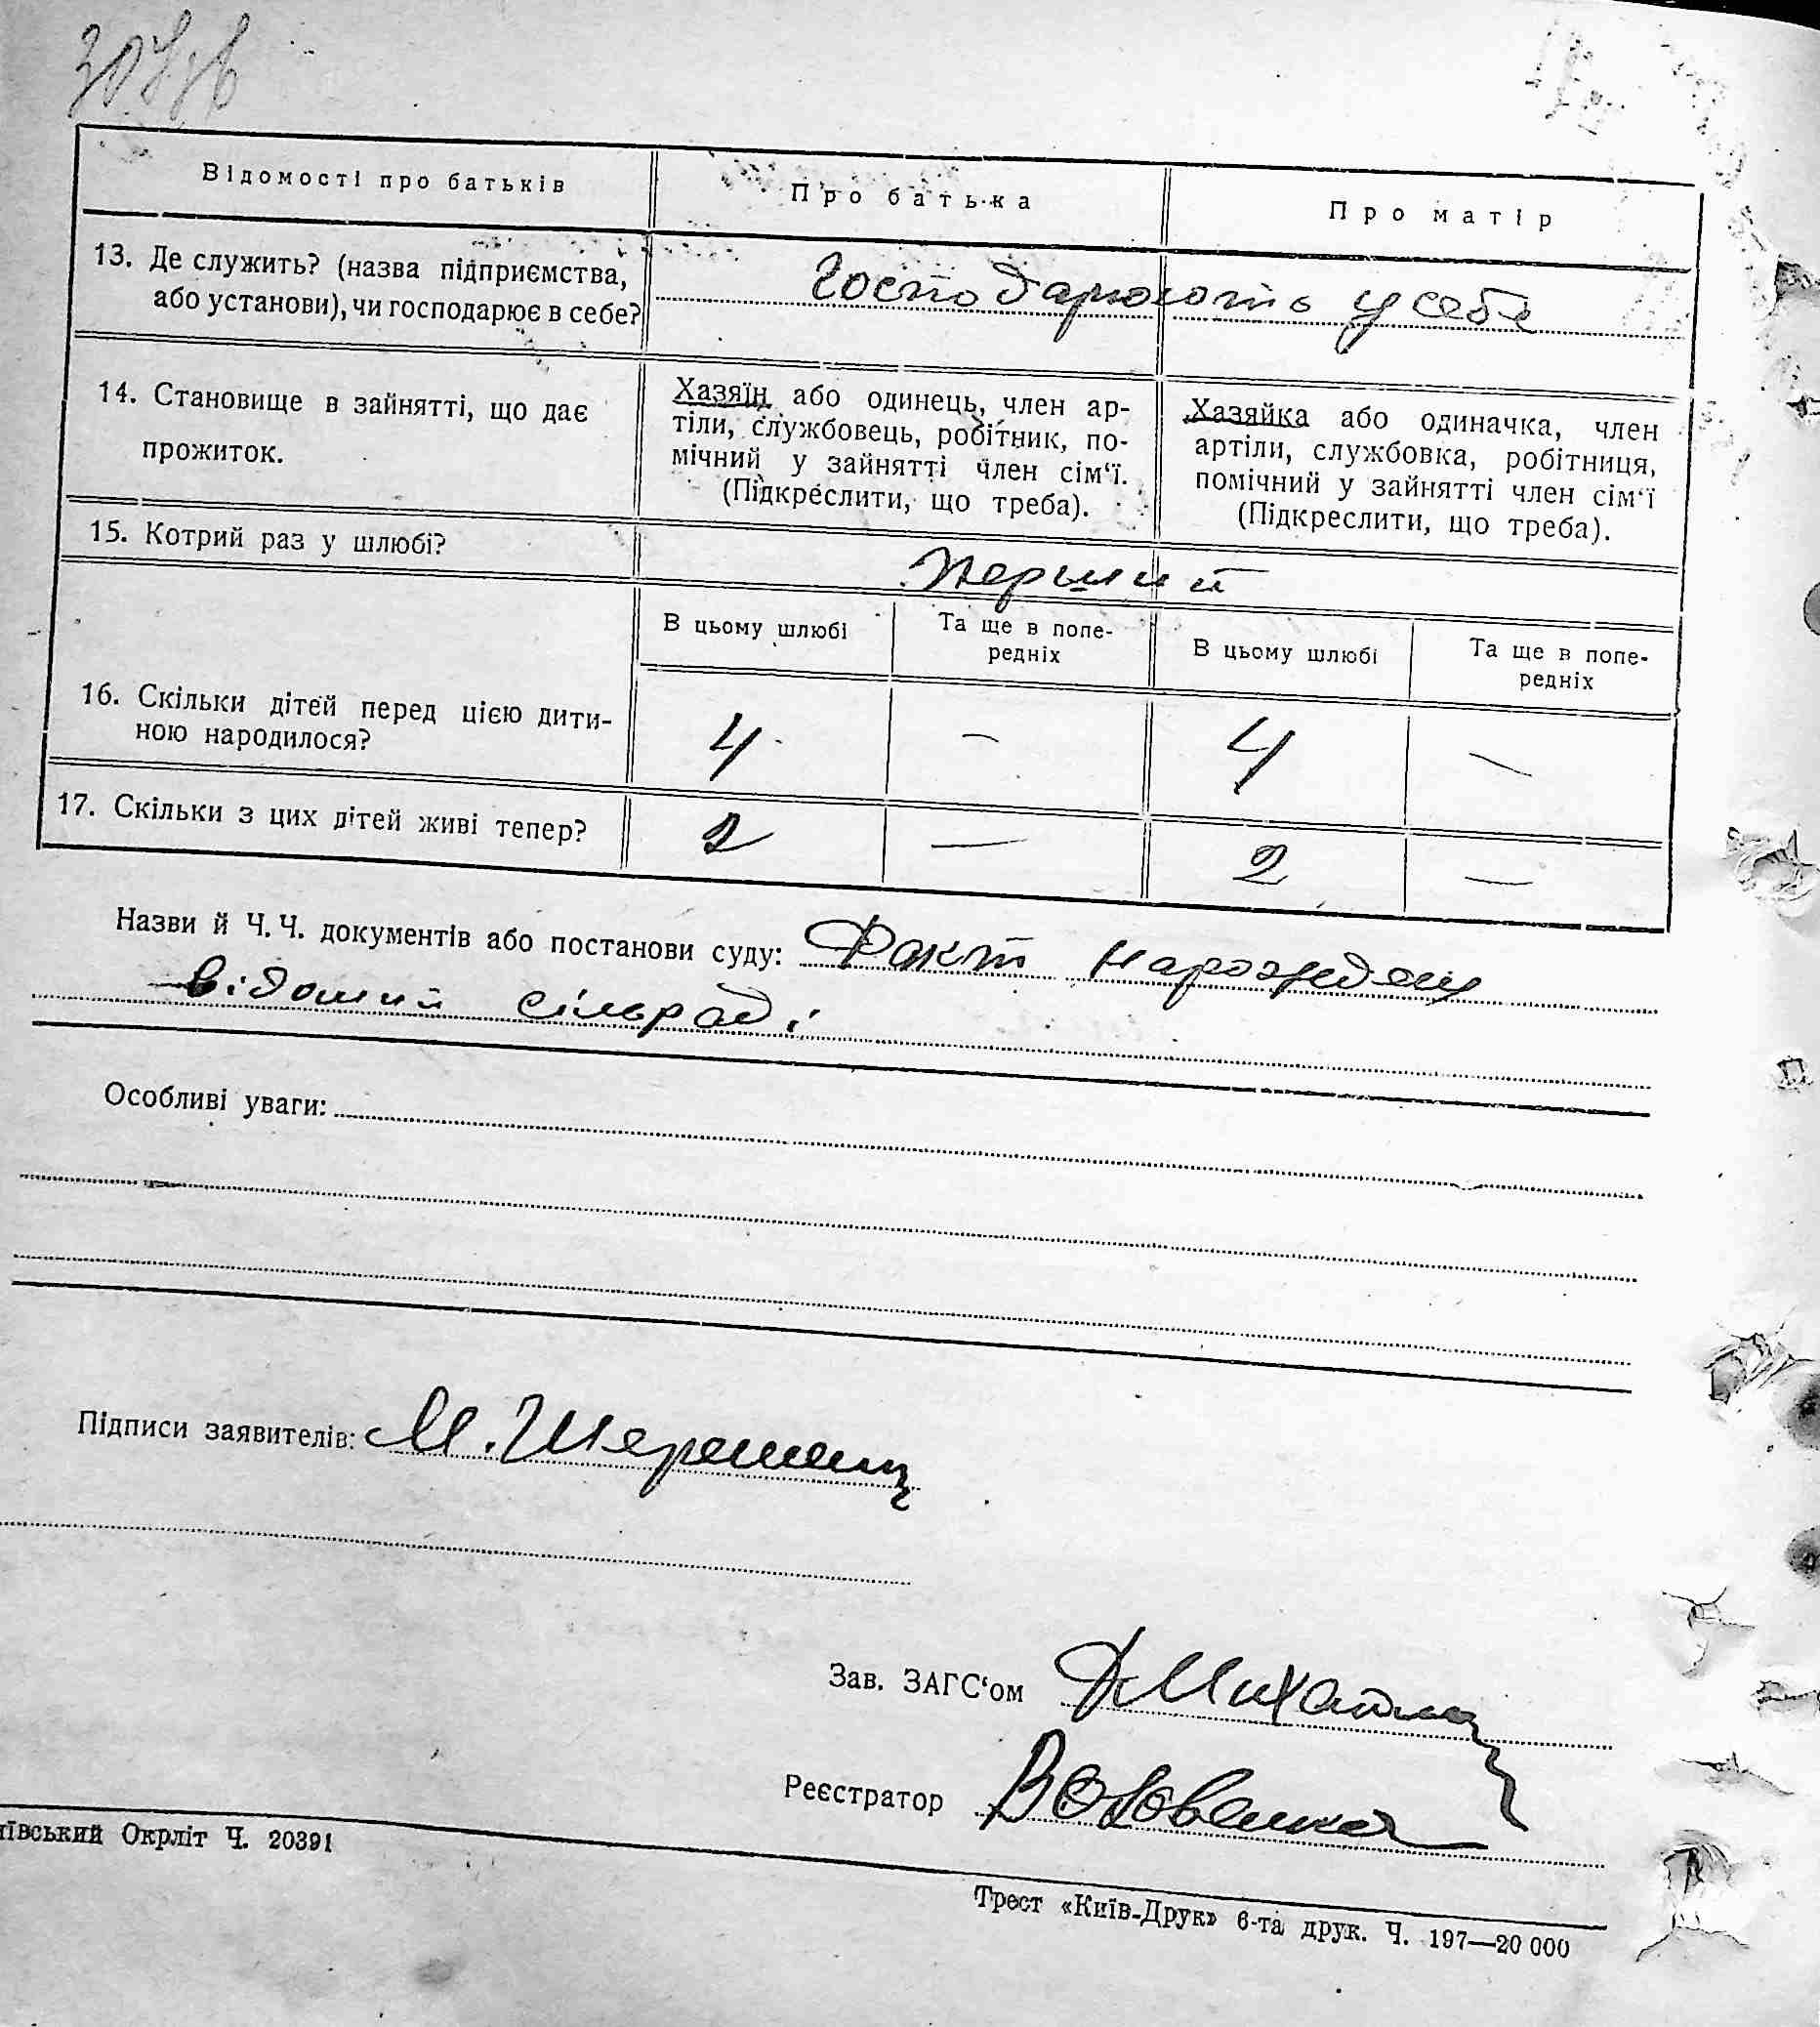 Відомості про батьків
Про батька
Про матір
13. Де служить? (назва підприємства,
або установи), чи господарює в себе?
Господарюють у себе
14. Становище в зайнятті, що дає
прожиток.
Хазяїн або одинець, член ар-
тіли, службовець, робітник, по-
мічний у зайнятті член сім‘ї.
(Підкреслити, що треба).
Хазяйка або одиначка, член
артіли, службовка, робітниця,
помічний у зайнятті член сім‘ї
(Підкреслити, що треба).
15. Котрий раз у шлюбі?
Перший
В цьому шлюбі
Та ще в попе-
редніх
В цьому шлюбі
Та ще в попе-
редніх
16. Скільки дітей перед цією дити-
ною народилося?
4 — 4 —
17. Скільки з цих дітей живі тепер?
2 — 2 —
Назви й Ч.Ч. документів або постанови суду: Факт народження
відомий сільраді
Особливі уваги:
Підписи заявителів: М.
Зав. ЗАГС‘ом
Реєстратор
ївський Окрліт Ч. 20391
Трест «Київ-Друк» 6-та друк. Ч. 197—20 000